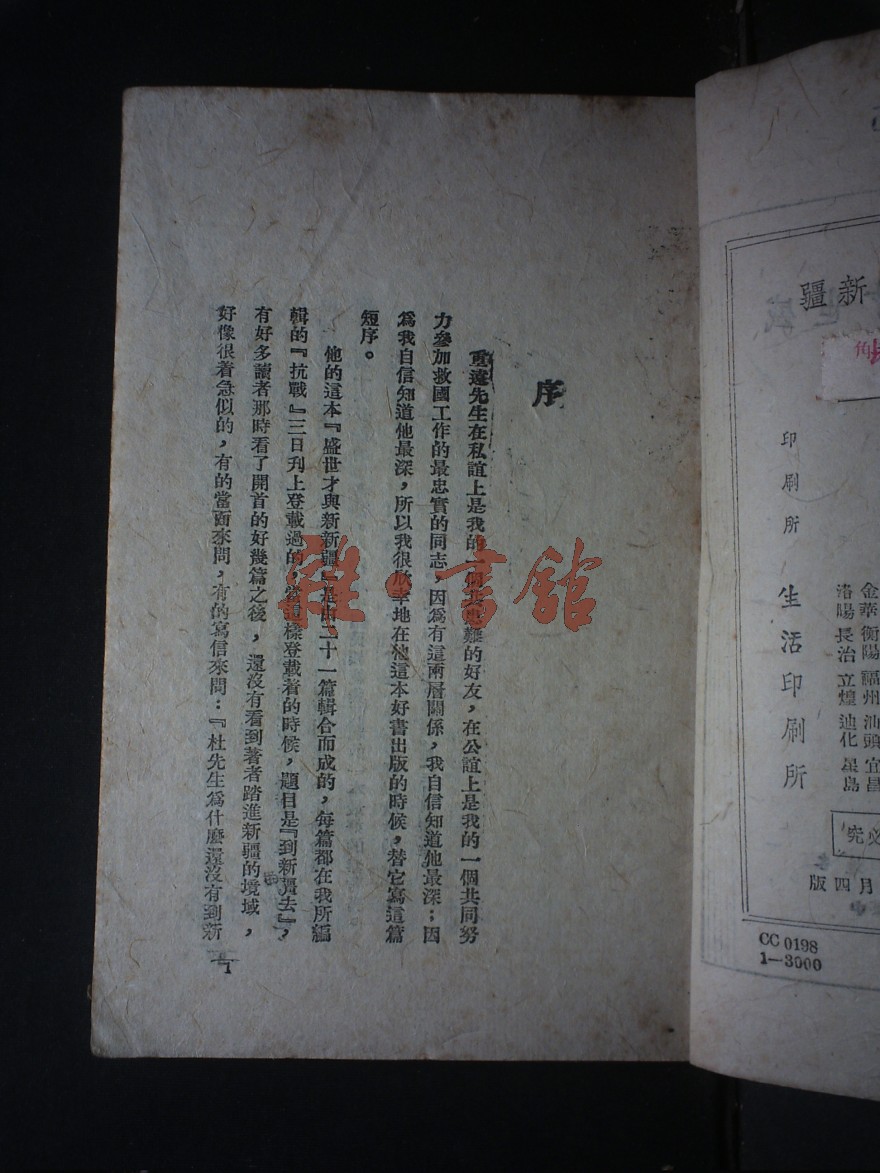 序
重遠先生在私誼上是我的一個共患難的好友，在公誼上是我的一個共同努
力參加救國工作的最忠實的同志，因爲有這兩層關係，我自信知道他最深；因
爲我自信知道他最深，所以我很欣幸地在他這本好書出版的時候，替它寫這篇
短序。
他的這本『盛世才與新新疆』是由二十一篇輯合而成的，每篇都在我所編
輯的『抗戰』三日刊上登載過的，當這樣登載著的時候，題目是『到新疆去』，
有好多讀者那時看了開首的好幾篇之後，還沒有看到著者踏進新疆的境域，
好像很着急似的，有的當面來問，有的寫信來問：『杜先生爲什麼還沒有到新
1
雜·書館
新疆
角
印刷所 生活印刷所
金華 衡陽 福州 汕頭 宜昌
洛陽 長治 立煌 迪化 星島
必究
月四版
CC 0198
1—3000